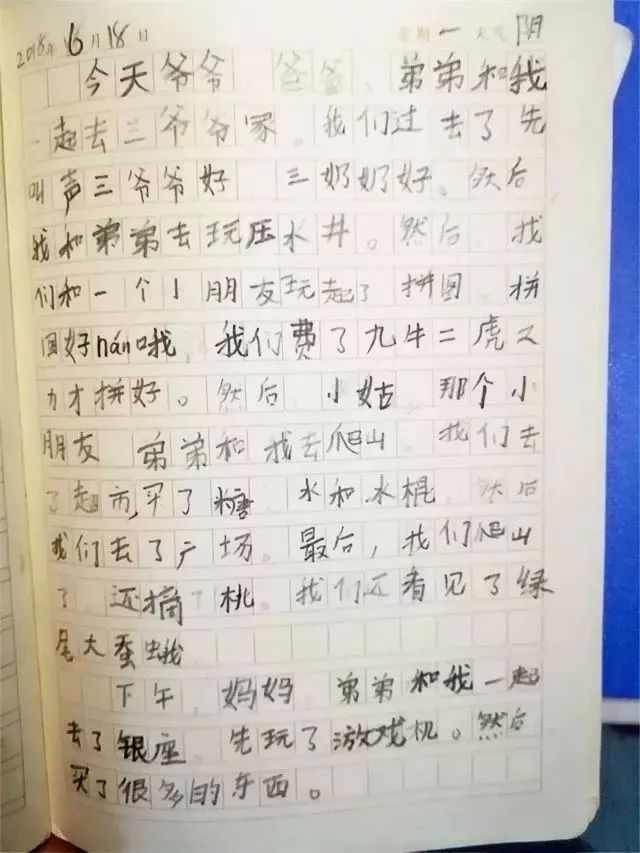 2018年6月18日 星期一 天气 阴
今天爷爷、爸爸、弟弟和我
一起去三爷爷家。我们过去了先
叫声三爷爷好、三奶奶好。然后,
我和弟弟去玩压水井。然后,我
们和一个小朋友玩起了拼图。拼
图好nán哦,我们费了九牛二虎之
力才拼好。然后,小姑、那个小
朋友、弟弟和我去爬山。我们去
了超市,买了糖、水和冰棍。然后,
我们去了广场。最后,我们爬山
了,还摘了桃。我们还看见了绿
尾大蚕蛾。
下午,妈妈、弟弟和我一起
去了银座。先玩了游戏机。然后
买了很多的东西。